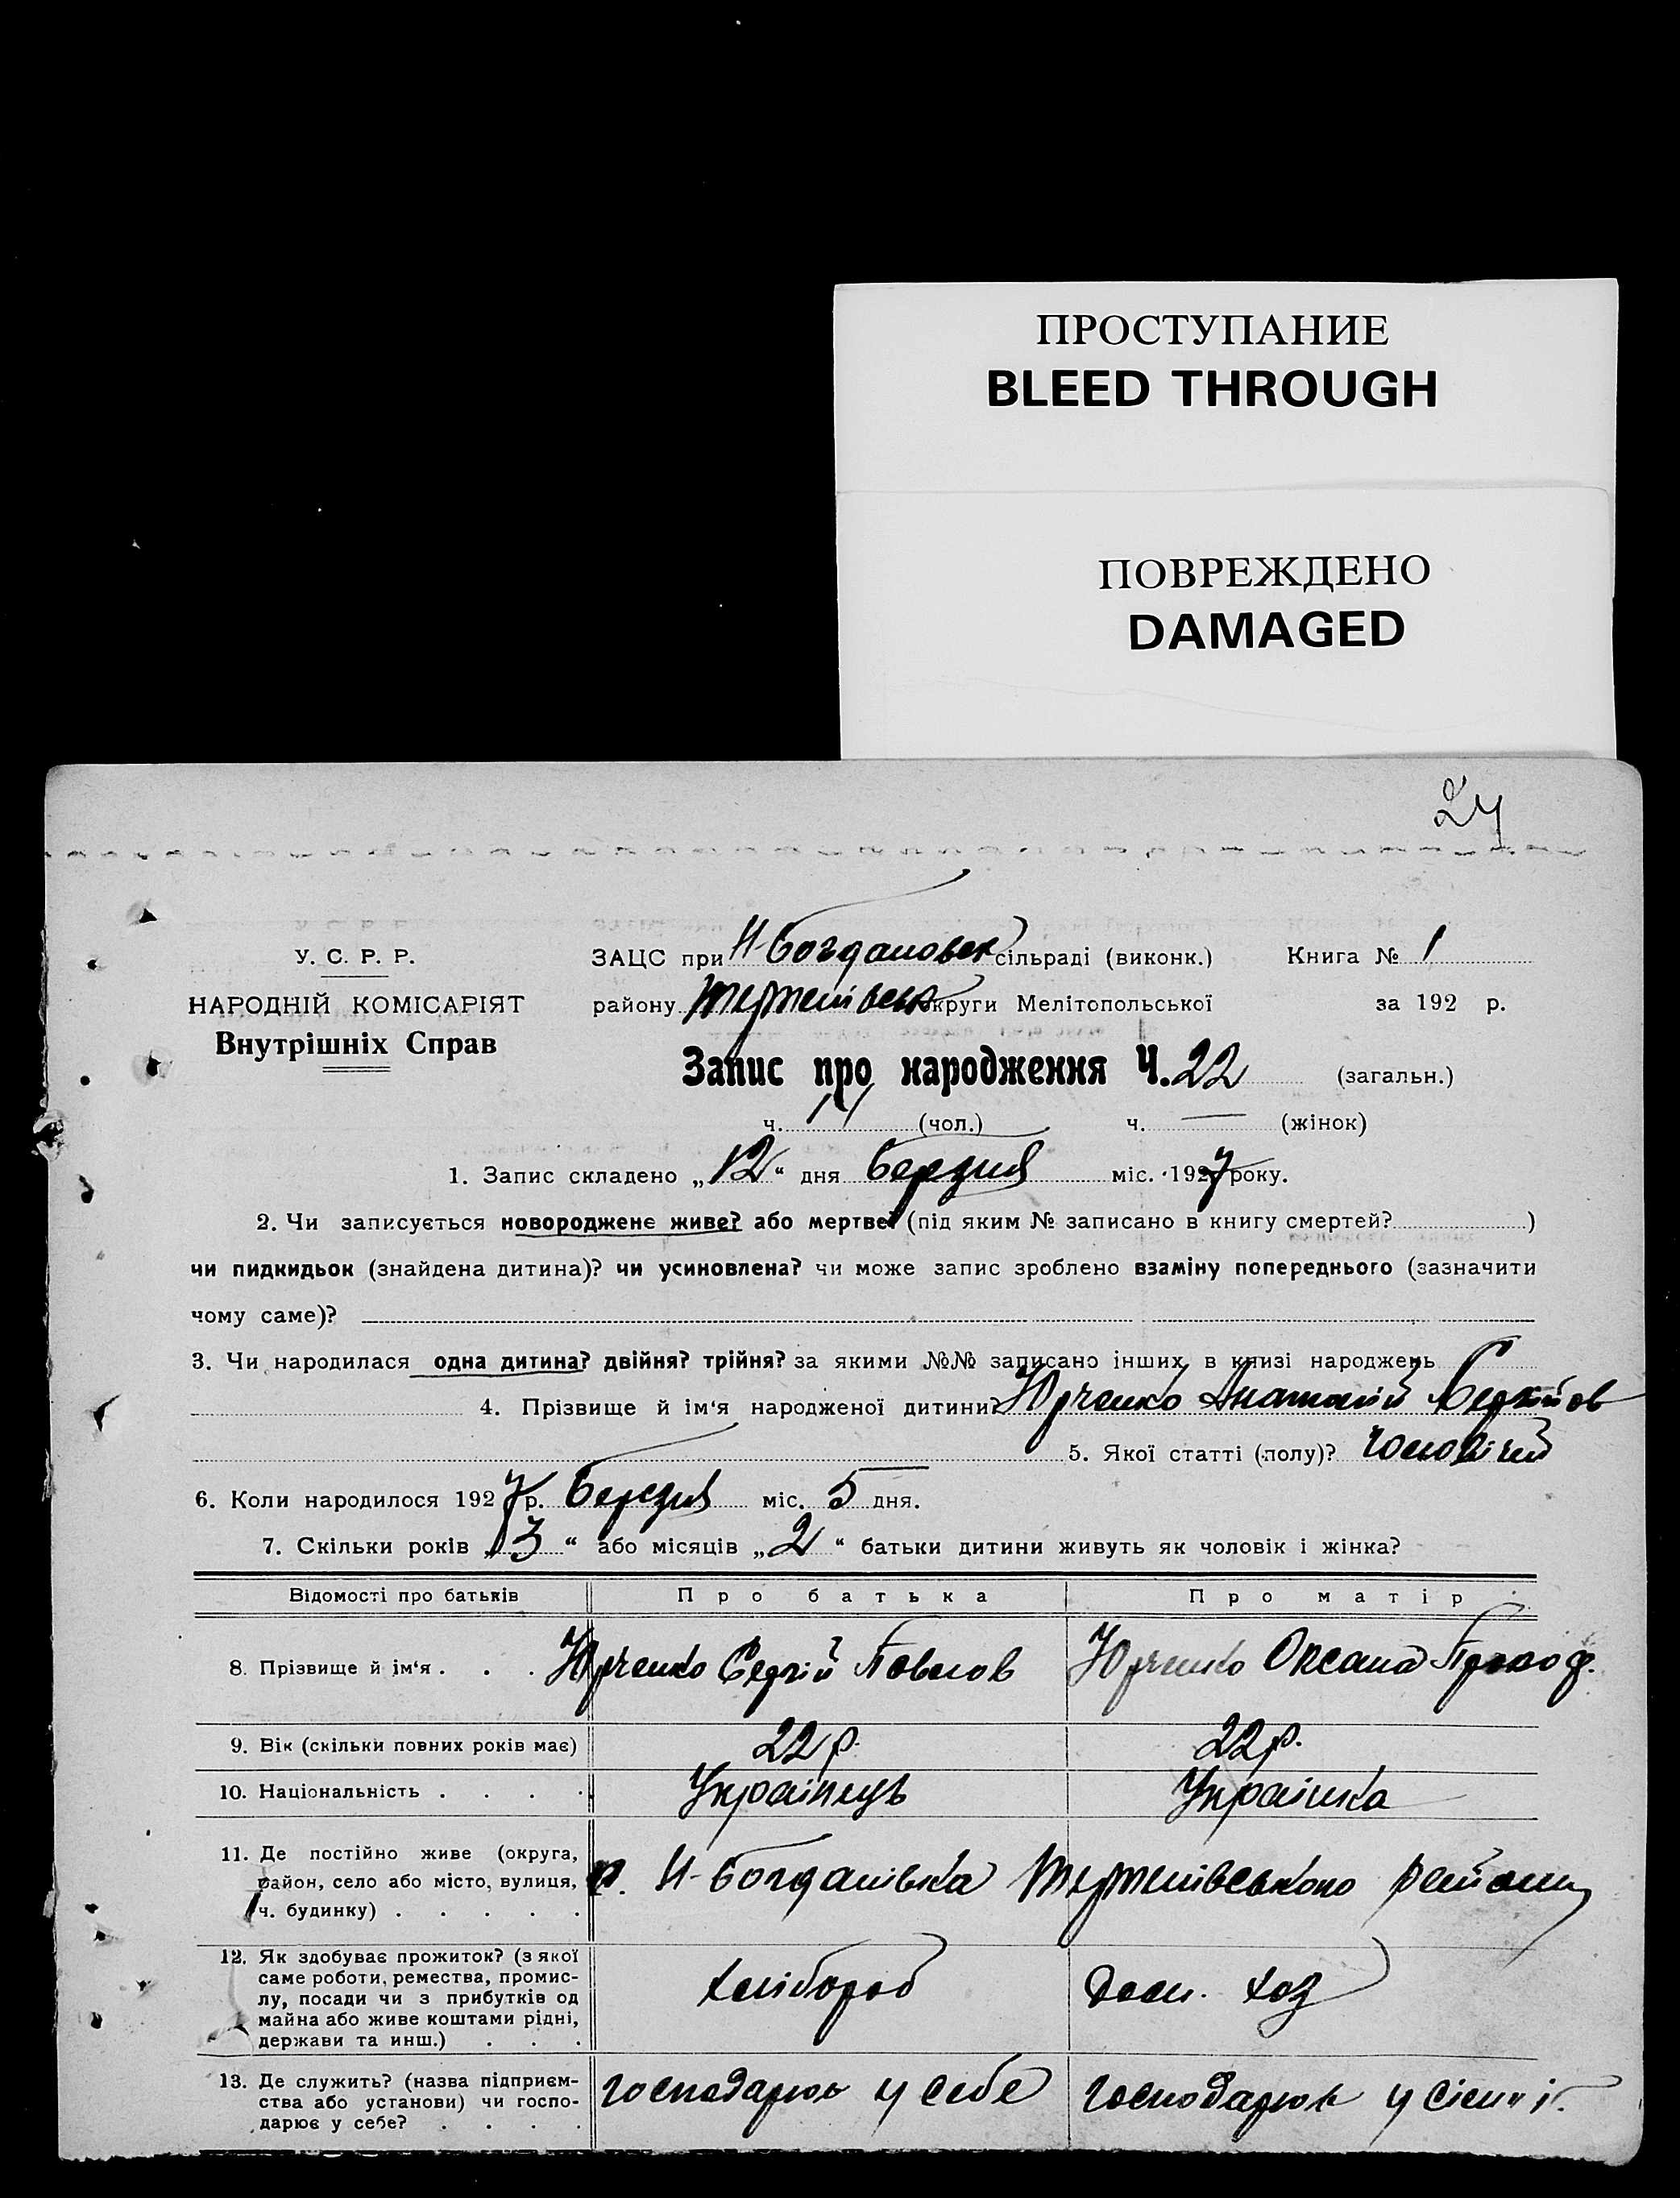 ПРОСТУПАНИЕ
BLEED THROUGH
ПОВРЕЖДЕНО
DAMAGED
24
У. С. Р. Р.
НАРОДНІЙ КОМІСАРІЯТ
Внутрішніх Справ
ЗАЦС при Н-Богдановск сільраді (виконк.) Книга № 1
району Терпенівськ округи Мелітопольської за 192 р.
Запис про народження Ч. 22 (загальн.)
ч. 11 (чол.) ч. — (жінок)
1. Запис складено „12“ дня Березня міс. 1927 року.
2. Чи записується новороджене живе? або мертве? (під яким № записано в книгу смертей? )
чи пидкидьок (знайдена дитина)? чи усиновлена? чи може запис зроблено взаміну попереднього (зазначити
чому саме)?
3. Чи народилася одна дитина? двійня? трійня? за якими №№ записано інших в книзі народжень
4. Прізвище й ім‘я народженої дитини? Юрченко Анатолій Сергійов
5. Якої статті (полу)? Чоловічий
6. Коли народилося 1927 р. Березня міс. 5 дня.
7. Скільки років „3“ або місяців „2“ батьки дитини живуть як чоловік і жінка?
Відомості про батьків Про батька Про матір
8. Прізвище й ім‘я . . . Юрченко Сергій Павлов Юрченко Оксана Прокоф.
9. Вік (скільки повних років має) 22 р. 22 р.
10. Національність . . . . Українець Українка
11. Де постійно живе (округа,
район, село або місто, вулиця, с. Н-Богданівка Терпенівського району
ч. будинку) . . . . .
12. Як здобуває прожиток? (з якої
саме роботи, ремества, промис-
лу, посади чи з прибутків од хлібороб Дом. хоз
майна або живе коштами рідні,
держави та инш.) . . .
13. Де служить? (назва підприєм-
ства або установи) чи госпо- господарює у себе господарює у
дарює у себе? . . . .